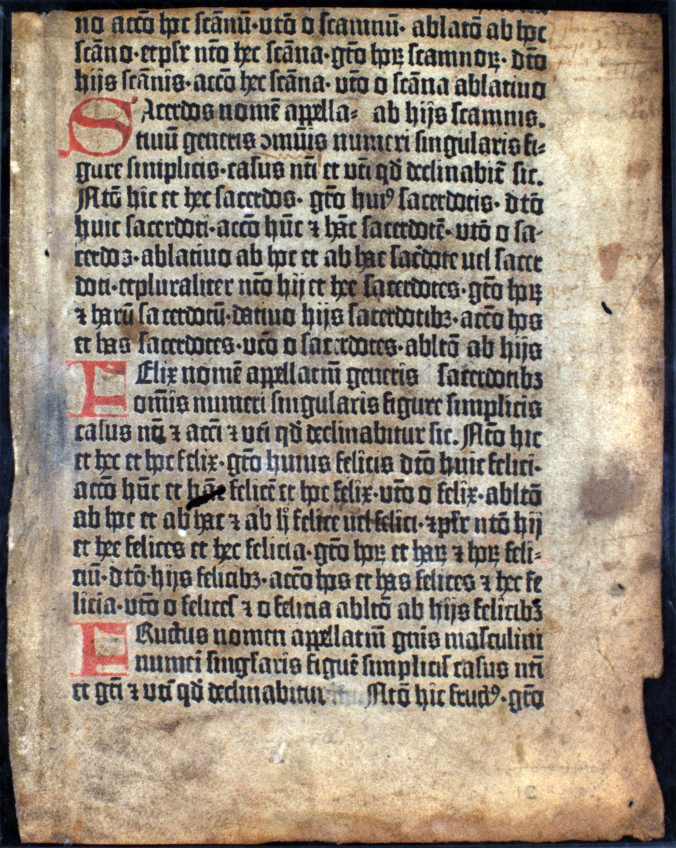 no accō hoc scānū·vtō o scamnū· ablatō ab hoc
scāno·etplr̄ ntō hec scāna·gtō hoꝝ scamnoꝝ· dtō
hijs scānis·accō hec scāna· vtō o scāna ablatiuo
SAcerdos nomē appella⸗ ab hijs scamnis.
tiuū generis ↄmūis numeri singularis fi⸗
gure simplicis·casus nt̄i et vt̄i qd̄ declinabit̄ sic.
Ntō hic et hec sacerdos· gtō huiꝰ sacerdotis· dtō
huic sacerdoti·accō hūc ⁊ hāc sacerdotē· vtō o sa-
cerdoꝫ·ablatiuo ab hoc et ab hac sac̄dote uel sacer
doti·etpluraliter ntō hij et hee sacerdotes·gtō hoꝝ
⁊ harū sacerdotū·datiuo hijs sacerdotibꝫ·accō hos
et has sacerdotes·vtō o sacerdotes·abltō ab hijs
FElix nomē appellatiū generis sacerdotibꝫ
omīs numeri singularis figure simplicis
casus nt̄i ⁊ acc̄i ⁊ vt̄i qd̄ declinabitur sic. Ntō hic
et hec et hoc felix·gtō huius felicis dtō huic felici·
accō hūc et hāc felicē et hoc felix·vtō o felix·abltō
ab hoc et ab hac ⁊ ab h̄ felice uel felici·⁊plr̄ ntō hij
et hee felices et hec felicia·gtō hoꝝ et haꝝ ⁊ hoꝝ feli⸗
ciū·dtō·hijs felicibꝫ·accō hos et has felices ⁊ hec fe
licia·vtō o felices ⁊ o felicia abltō ab hijs felicibꝫ
FRuctus nomen appellatiū gn̄is masculini
numeri singlaris figure simplicis casus nt̄i
et gt̄i ⁊ vt̄i qd̄ declinabitur Ntō hic fructꝰ·gtō